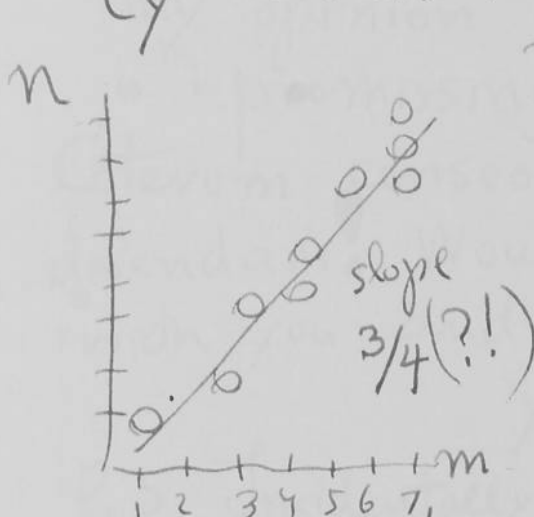 n
slope
3/4 (?!)
m
1 2 3 4 5 6 7